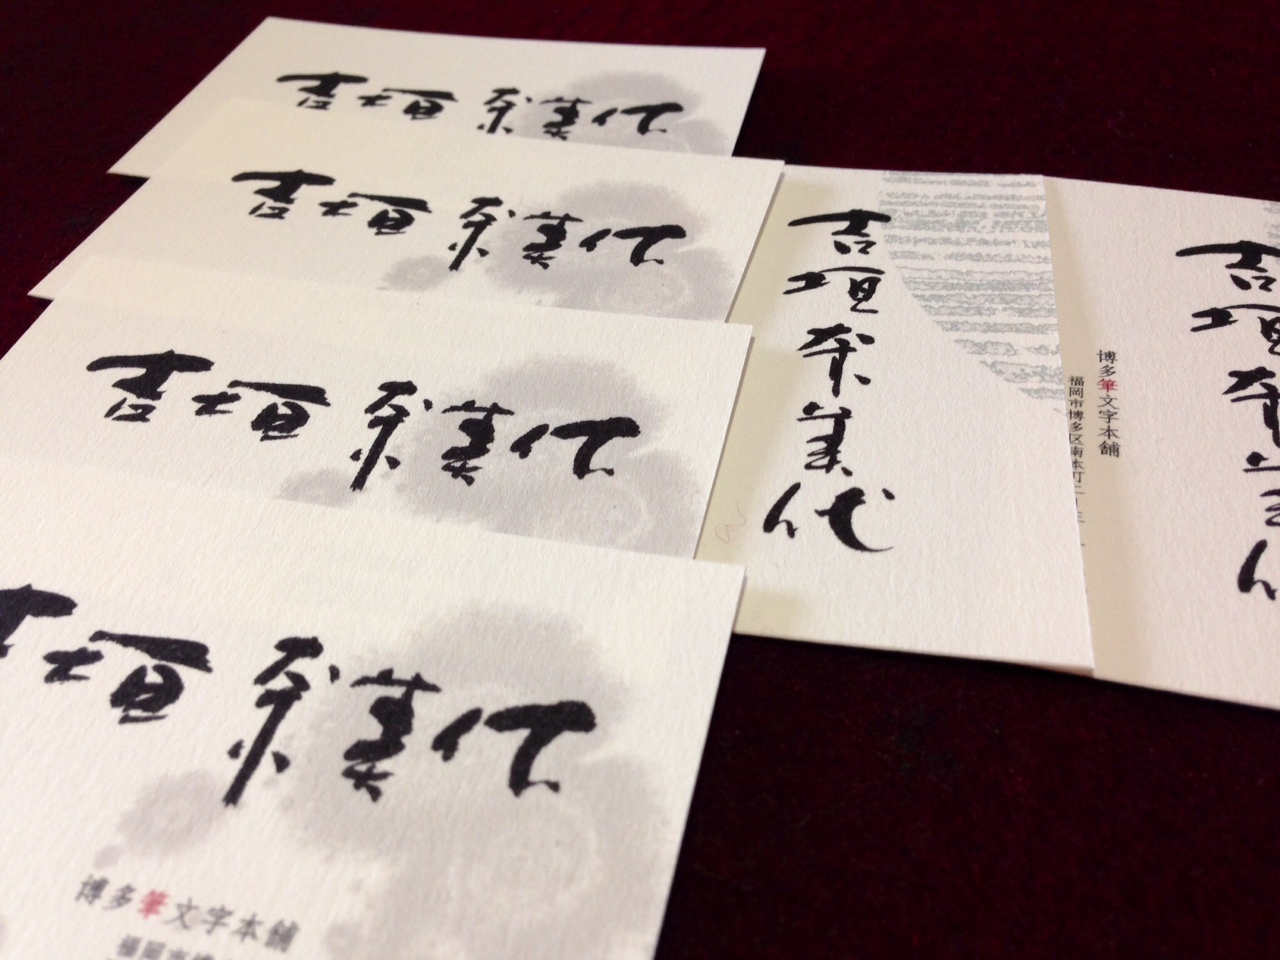 吉垣奈美代
吉垣奈美代
吉垣奈美代
吉垣奈美代
博多筆文字本舗
福岡市博
吉垣奈美代
吉垣奈美代
博多筆文字本舗
福岡市博多区南本町